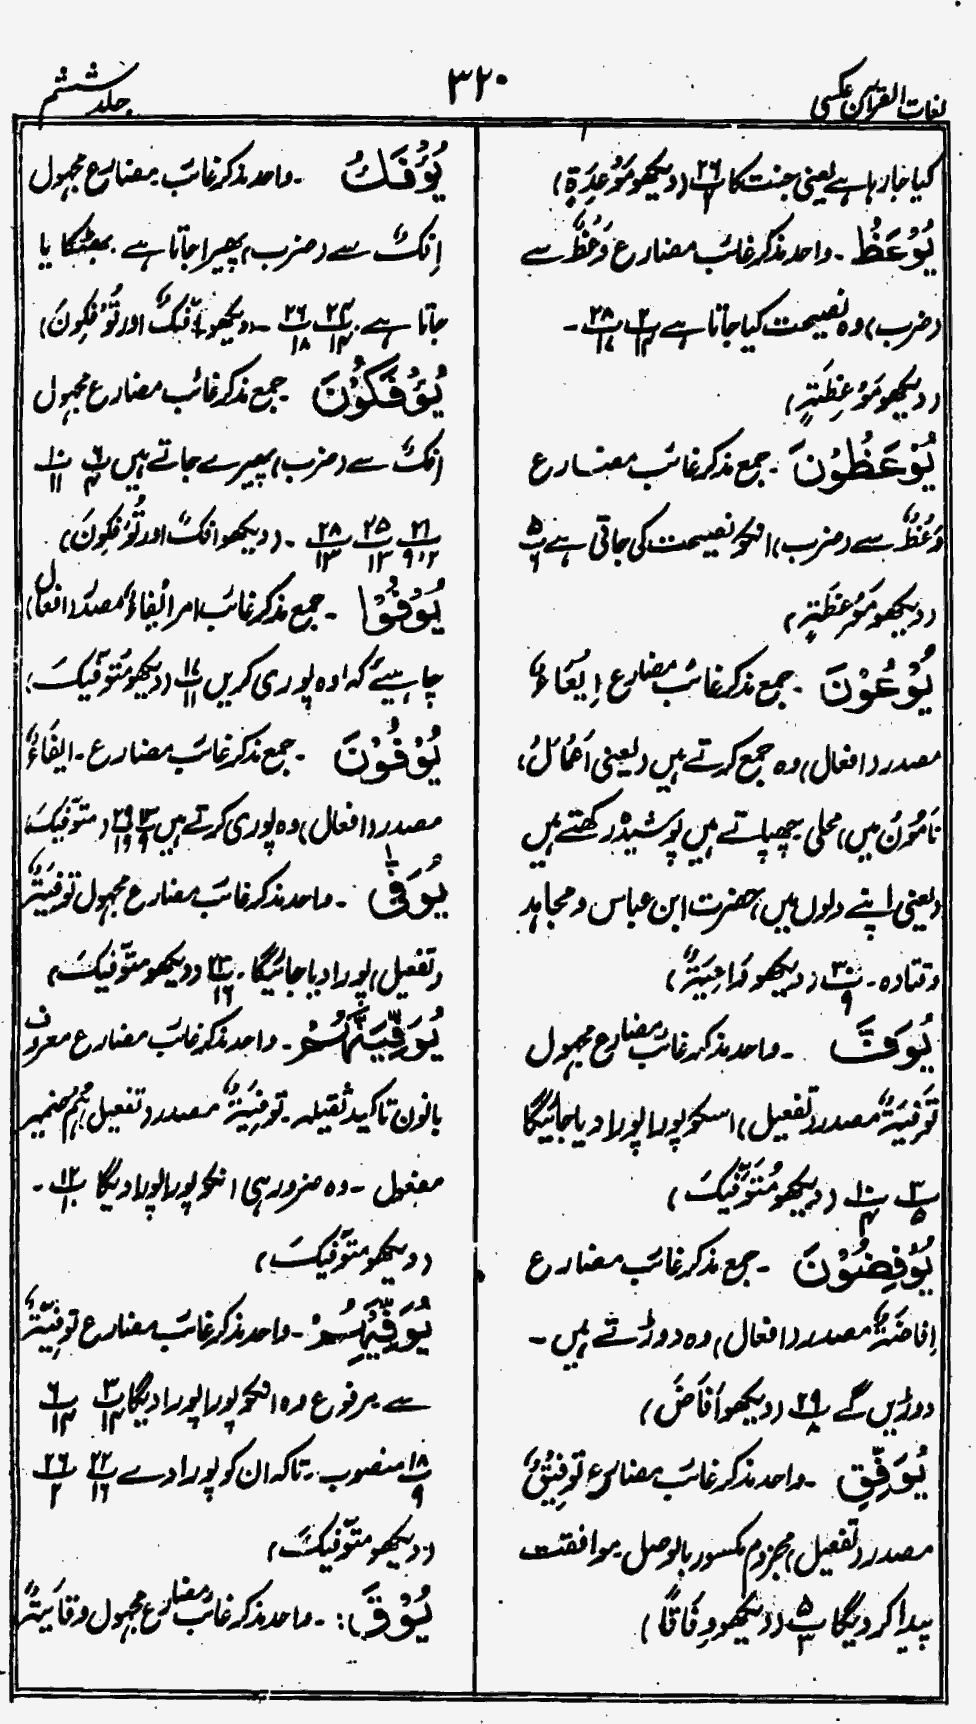 لغات القرآن عکسی
۳۲۰
جلد ششم
کیا جا رہا ہے یعنی جنت کا پ ۲۶ (دیکھو مَوْعِدَۃٍ)
یُوْعَظُ ۔ واحد مذکر غائب مضارع وَعْظٌ سے
(ضرب) وہ نصیحت کیا جاتا ہے پ ۲ ۱۴ پ ۲۸ ۱۷ ۔
(دیکھو مَوْعِظَتٍ)
یُوْعَظُوْنَ ۔ جمع مذکر غائب مضارع
وَعْظٌ سے (ضرب) انکو نصیحت کی جاتی ہے پ ۵ ۶
(دیکھو مَوْعِظَتٍ)
یُوْعُوْنَ ۔ جمع مذکر غائب مضارع اِیْعَاءٌ
مصدر (افعال) وہ جمع کرتے ہیں (یعنی اَعْمَالَ،
نَامُوْں میں) محلی چھپاتے ہیں پوشیدہ رکھتے ہیں
(یعنی اپنے دلوں میں) حضرت ابن عباس و مجاہد
و قتادہ ۔ پ ۳۰ ۹ (دیکھو وَاعِیَۃٌ)
یُوَفَّ ۔ واحد مذکر غائب مضارع مجہول
تَوْفِیَۃٌ مصدر (تفعیل) اسکو پورا پورا دیا جائیگا
پ ۳ ۵ پ ۱۰ ۴ (دیکھو مُتَوَفِّیْکَ)
یُوْفِضُوْنَ ۔ جمع مذکر غائب مضارع
اِفَاضَۃٌ مصدر (افعال) وہ دوڑتے ہیں ۔
دوڑیں گے پ ۲۹ ۸ (دیکھو اَفَاضَ)
یُوَفِّقِ ۔ واحد مذکر غائب مضارع تَوْفِیْقٌ
مصدر (تفعیل) مجزوم مکسور بالوصل موافقت
پیدا کر دیگا پ ۵ ۳ (دیکھو وِفَاقًا)
یُؤْفَکُ ۔ واحد مذکر غائب مضارع مجہول
اِفْکٌ سے (ضرب) پھیرا جاتا ہے بھٹکایا
جاتا ہے پ ۲۴ ۱۲ پ ۲۶ ۱۸ ۔ (دیکھو اٰفِکٌ اور تُؤْفَکُوْنَ)
یُؤْفَکُوْنَ ۔ جمع مذکر غائب مضارع مجہول
افکٌ سے (ضرب) پھیرے جاتے ہیں پ ۶ ۴ پ ۱۰ ۱۱
پ ۲۱ ۲، ۹ پ ۲۵ ۱۳ پ ۲۸ ۱۳ ۔ (دیکھو افکٌ اور تُؤْفَکُوْنَ)
یُوْفُوْا ۔ جمع مذکر غائب امر اِیْفَاءٌ مصدر (افعال)
چاہیئے کہ وہ پوری کریں پ ۱۷ ۱۱ (دیکھو مُتَوَفِّیْکَ)
یُوْفُوْنَ ۔ جمع مذکر غائب مضارع ۔ ایفَاءٌ
مصدر (افعال) وہ پوری کرتے ہیں پ ۱۳ ۹ پ ۲۹ ۱۹ (متوفیکَ)
یُوَفّٰی ۔ واحد مذکر غائب مضارع مجہول توفِیَۃٌ
(تفعیل) پورا دیا جائیگا ۔ پ ۲۳ ۱۶ (دیکھو متوفّیکَ)
یُوَفِّیَنَّہُمْ ۔ واحد مذکر غائب مضارع معروف
بانون تاکید ثقیلہ ۔ توفِیَۃٌ مصدر (تفعیل) ہُمْ ضمیر
مفعول ۔ وہ ضرور ہی انکو پورا پورا دیگا پ ۱۲ ۱۰ ۔
(دیکھو متوفّیکَ)
یُوَفِّیْہِمْ ۔ واحد مذکر غائب مضارع توفِیَۃٌ
سے مرفوع وہ انکو پورا پورا دیگا پ ۳ ۱۴ پ ۶ ۱۴
پ ۱۸ ۹ منصوب ۔ تاکہ ان کو پورا دے پ ۲۲ ۱۶ پ ۲۶ ۲
(دیکھو متوفّیکَ)
یُوْقَ : ۔ واحد مذکر غائب مضارع مجہول وقایۃٌ